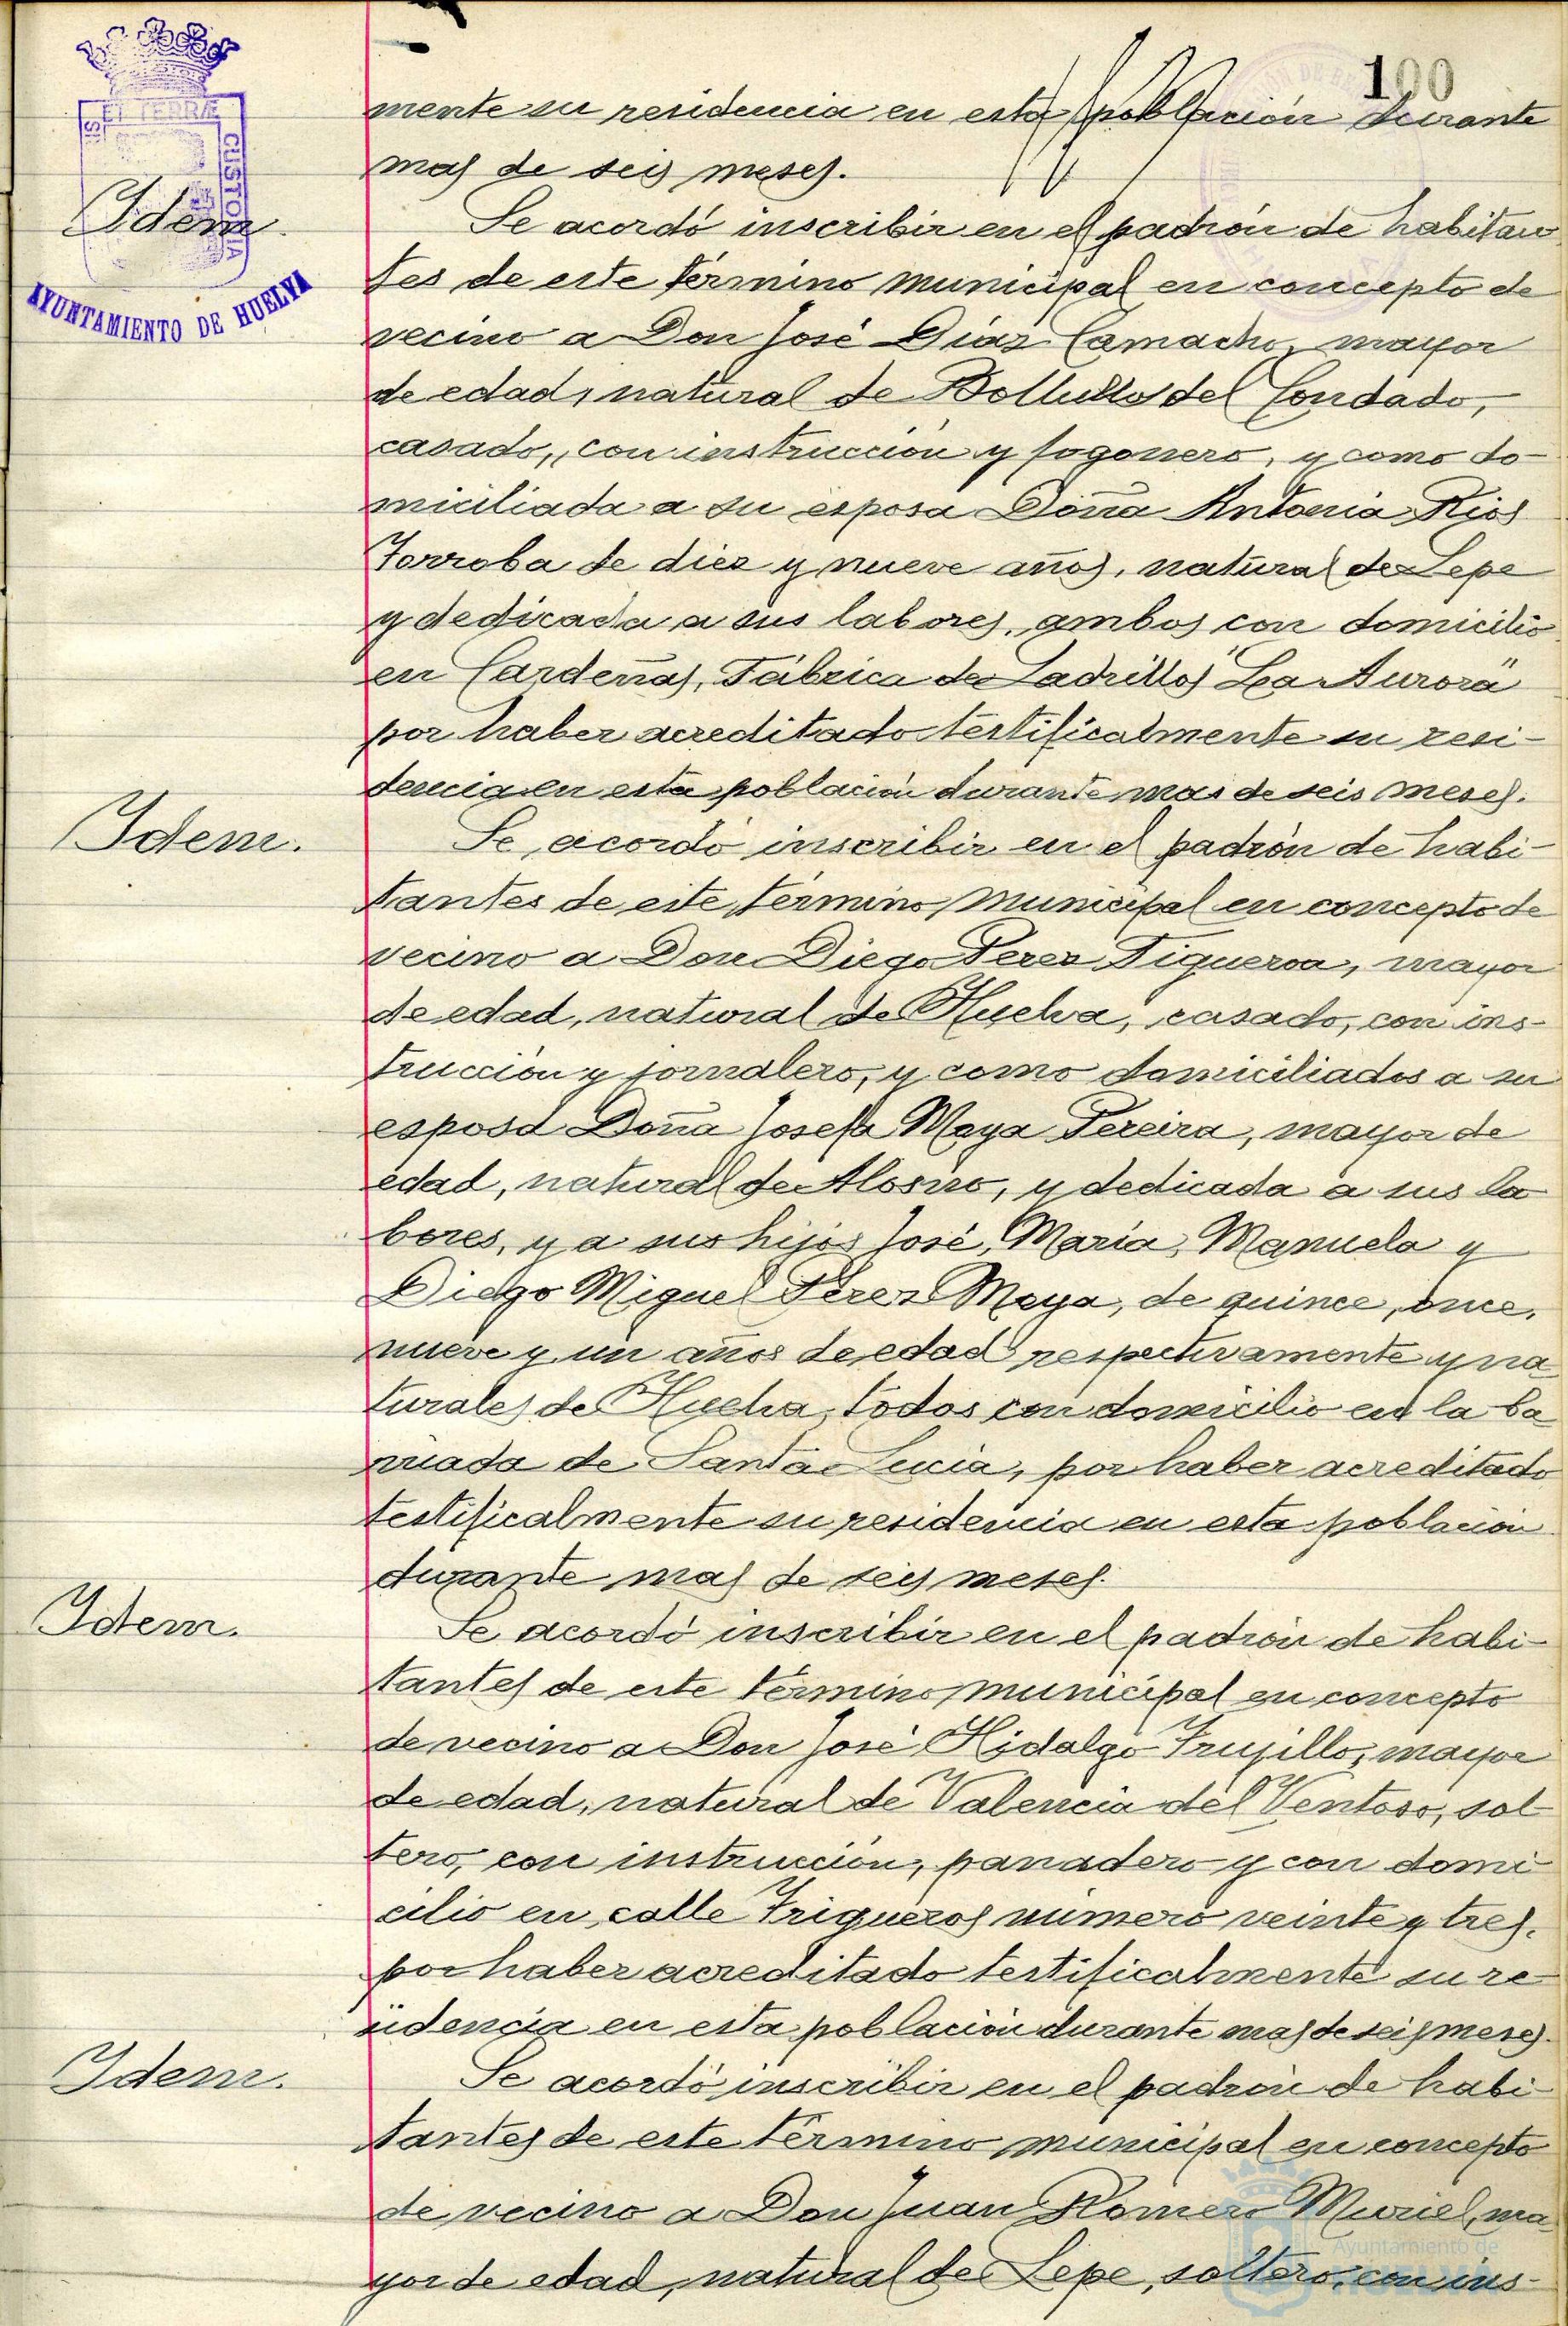 100
mente su residencia en esta población durante
mas de seis meses.
ET TERRÆ
CUSTODIA
AYUNTAMIENTO DE HUELVA
Idem
Se acordó inscribir en el padrón de habitan
tes de este término municipal en concepto de
vecino a Don José Diaz Camacho, mayor
de edad, natural de Bollullos del Condado,
casado, con instrucción y fogonero, y como do-
miciliada a su esposa Doña Antonia Rios
Torroba de diez y nueve años, natural de Lepe
y dedicada a sus labores, ambos con domicilio
en Cardeñas, Fábrica de Ladrillos "La Aurora"
por haber acreditado testificalmente su resi-
dencia en esta población durante mas de seis meses.
Idem.
Se acordó inscribir en el padrón de habi-
tantes de este término municipal en concepto de
vecino a Don Diego Perez Figueroa, mayor
de edad, natural de Huelva, casado, con ins-
trucción y jornalero, y como domiciliados a su
esposa Doña Josefa Maya Pereira, mayor de
edad, natural de Alosno, y dedicada a sus la
bores, y a sus hijos José, María, Manuela y
Diego Miguel Perez Maya, de quince, once,
nueve y un años de edad respectivamente y na
turales de Huelva, todos con domicilio en la ba
rriada de Santa Lucia, por haber acreditado
testificalmente su residencia en esta población
durante mas de seis meses.
Idem.
Se acordó inscribir en el padrón de habi-
tantes de este término municipal en concepto
de vecino a Don José Hidalgo Trujillo, mayor
de edad, natural de Valencia del Ventoso, sol
tero, con instrucción, panadero y con domi
cilio en calle Trigueros número veinte y tres,
por haber acreditado testificalmente su re
sidencia en esta población durante mas de seis meses.
Idem.
Se acordó inscribir en el padrón de habi-
tantes de este término municipal en concepto
de vecino a Don Juan Romero Muriel, ma
yor de edad, natural de Lepe, soltero, con ins-
Ayuntamiento de
HUELVA